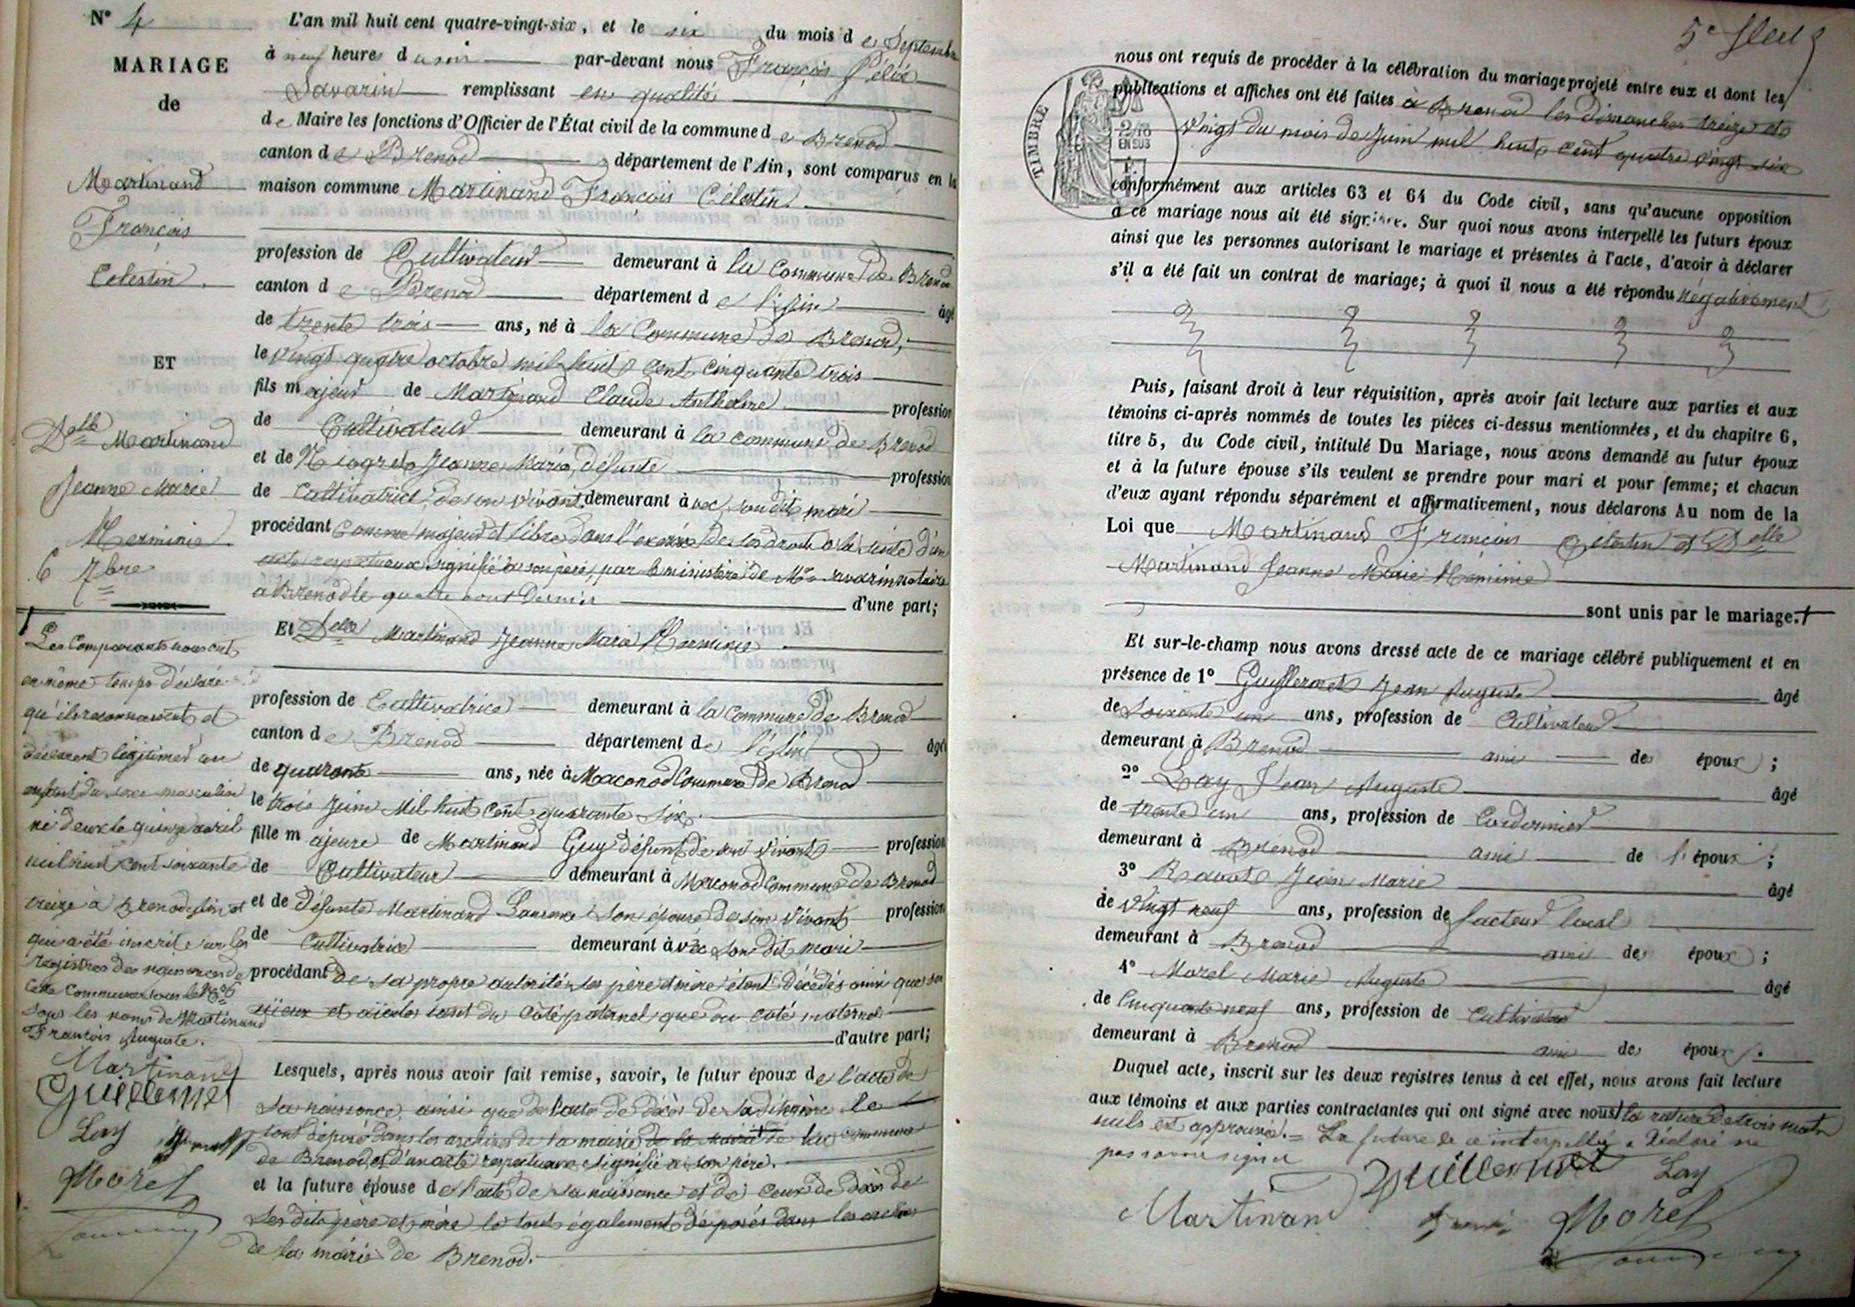 N° 4
MARIAGE
de
Martinand
François
Celestin.
ET
Delle Martinand
Jeanne Marie
Herminie
6 7bre
L'an mil huit cent quatre-vingt-six, et le six du mois de Septembre
à neuf heures du soir par-devant nous François Félix
Savarin remplissant en qualité
de Maire les fonctions d'Officier de l'État civil de la commune de Brenod
canton de Brenod département de l'Ain, sont comparus en la
maison commune Martinand François Célestin
profession de Cultivateur demeurant à la Commune de Brenod
canton de Brenod département de l'Ain âgé
de trente trois ans, né à la Commune de Brenod,
le vingt quatre octobre mil huit cent cinquante trois
fils majeur de Martinand Claude Anthelme profession
de Cultivateur demeurant à la commune de Brenod
et de Jeanne Marie, défunte profession
de Cultivatrice de son vivant demeurant avec son dit mari
procédant comme majeur et libre dans l'exercice de ses droits à la suite d'un
acte respectueux signifié à son père, par le ministère de Me Savarin notaire
à Brenod le quatre aout dernier d'une part;
Et Delle Martinand Jeanne Marie Herminie
profession de Cultivatrice demeurant à la Commune de Brenod
canton de Brenod département de l'Ain âgé
de quarante ans, née à Maconod Commune de Brenod
le trois Juin Mil huit cent quarante six.
fille majeure de Martinand Guy défunt de son vivant profession
de Cultivateur demeurant à Maconod Commune de Brenod
et de défunte Martinand Laurence son épouse de son vivant profession
de Cultivatrice demeurant avec son dit mari
procédant de sa propre autorité ses père et mère étant décédés ainsi que ses
aïeux et aïeules tant du côté paternel que du côté maternel
d'autre part;
Lesquels, après nous avoir fait remise, savoir, le futur époux de l'acte de
sa naissance, ainsi que de l'acte de décès de sa dite mère le
tout déposé dans les archives de la mairie de la mairie de la commune
de Brenod, et d'un acte respectueux signifié à son père.
et la future épouse de l'acte de sa naissance et de ceux de décès de
ses dits père et mère le tout également déposés dans les archives
de la mairie de Brenod.
Les Comparants nous ont
en même temps déclaré
qu'ils reconnaissent et
déclarent légitimer un
enfant du sexe masculin
né d'eux le quinze avril
mil huit cent soixante
treize à Brenod, Ain et
qui a été inscrit sur les
registres des naissances de
cette Commune sous le No 6
sous les noms de Martinand
François Auguste.
Martinand
Guillermet
Lay
Morel
5e flect
nous ont requis de procéder à la célébration du mariage projeté entre eux et dont les
publications et affiches ont été faites à Brenod les dimanches treize et
vingt du mois de Juin mil huit cent quatre vingt six
TIMBRE
2/10
EN SUS
conformément aux articles 63 et 64 du Code civil, sans qu'aucune opposition
à ce mariage nous ait été signifiée. Sur quoi nous avons interpellé les futurs époux
ainsi que les personnes autorisant le mariage et présentes à l'acte, d'avoir à déclarer
s'il a été fait un contrat de mariage; à quoi il nous a été répondu négativement
Puis, faisant droit à leur réquisition, après avoir fait lecture aux parties et aux
témoins ci-après nommés de toutes les pièces ci-dessus mentionnées, et du chapitre 6,
titre 5, du Code civil, intitulé Du Mariage, nous avons demandé au futur époux
et à la future épouse s'ils veulent se prendre pour mari et pour femme; et chacun
d'eux ayant répondu séparément et affirmativement, nous déclarons Au nom de la
Loi que Martinand François Célestin et Delle
Martinand Jeanne Marie Herminie
sont unis par le mariage.
Et sur-le-champ nous avons dressé acte de ce mariage célébré publiquement et en
présence de 1° Guillermet Jean Auguste âgé
de soixante un ans, profession de Cultivateur
demeurant à Brenod ami des époux;
2° Lay Jean Auguste âgé
de trente un ans, profession de Cordonnier
demeurant à Brenod ami de l'époux;
3° Ravot Jean Marie âgé
de vingt neuf ans, profession de facteur local
demeurant à Brenod ami des époux;
4° Morel Marie Auguste âgé
de Cinquante neuf ans, profession de Cultivateur
demeurant à Brenod ami des époux.
Duquel acte, inscrit sur les deux registres tenus à cet effet, nous avons fait lecture
aux témoins et aux parties contractantes qui ont signé avec nous la rature de trois mots
nuls est approuvée. = La future de ce interpellée a déclaré ne
pas savoir signer
Martinand
Guillermet
Lay
Morel